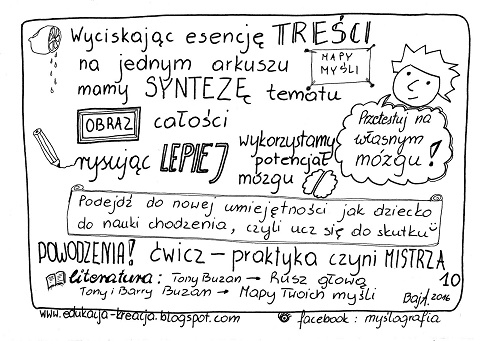 Wyciskając esencję TREŚCI
na jednym arkuszu
MAPY
MYŚLI
mamy SYNTEZĘ tematu
OBRAZ całości
Przetestuj na
własnym
mózgu!
rysując LEPIEJ wykorzystamy
potencjał
mózgu
Podejdź do nowej umiejętności jak dziecko
do nauki chodzenia, czyli ucz się do skutku
POWODZENIA! ćwicz – praktyka czyni MISTRZA
literatura: Tony Buzan → Rusz głową
10
Tony i Barry Buzan → Mapy Twoich myśli
BajA. 2016
www.edukacja-kreacja.blogspot.com
facebook: myślografia